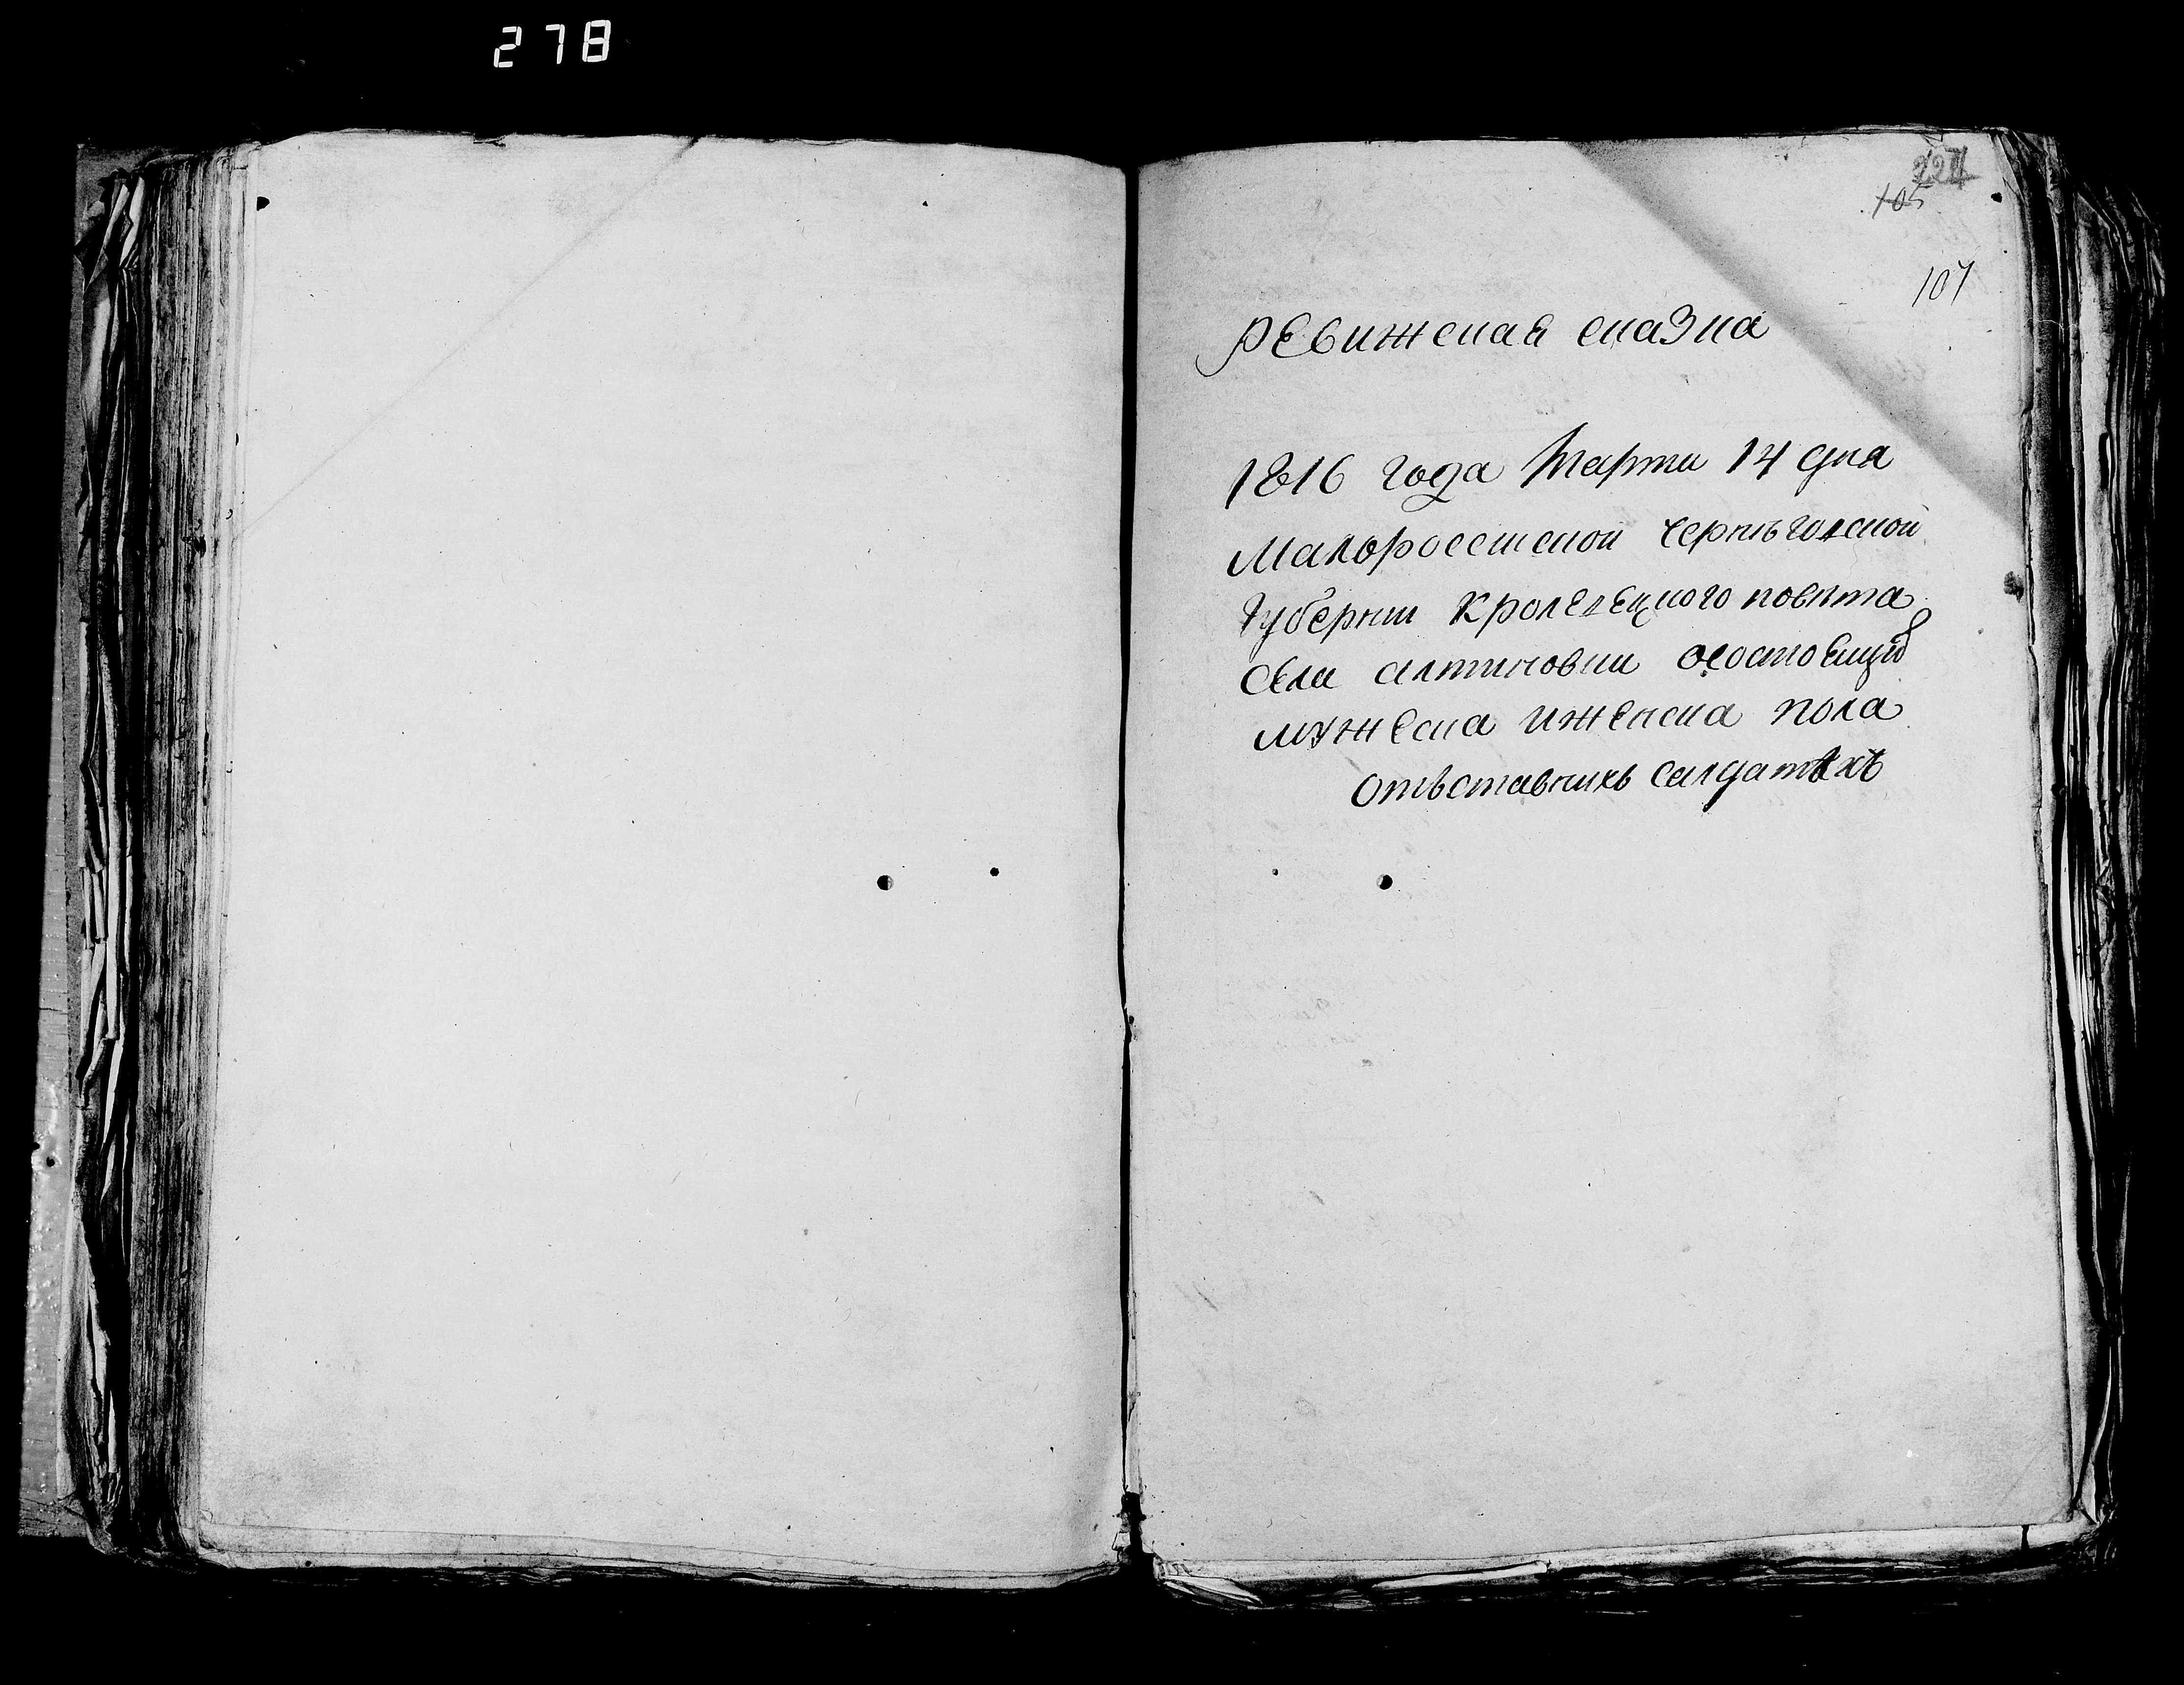 278
221
105
107
Ревижская сказка
1816 года Марта 14 дня
Малороссиской Чернѣговской
Губернии Кролевецкого повѣта
села Алтиновки осостоящих
мужеска иженска пола
отъставнихъ салдатѣхъ